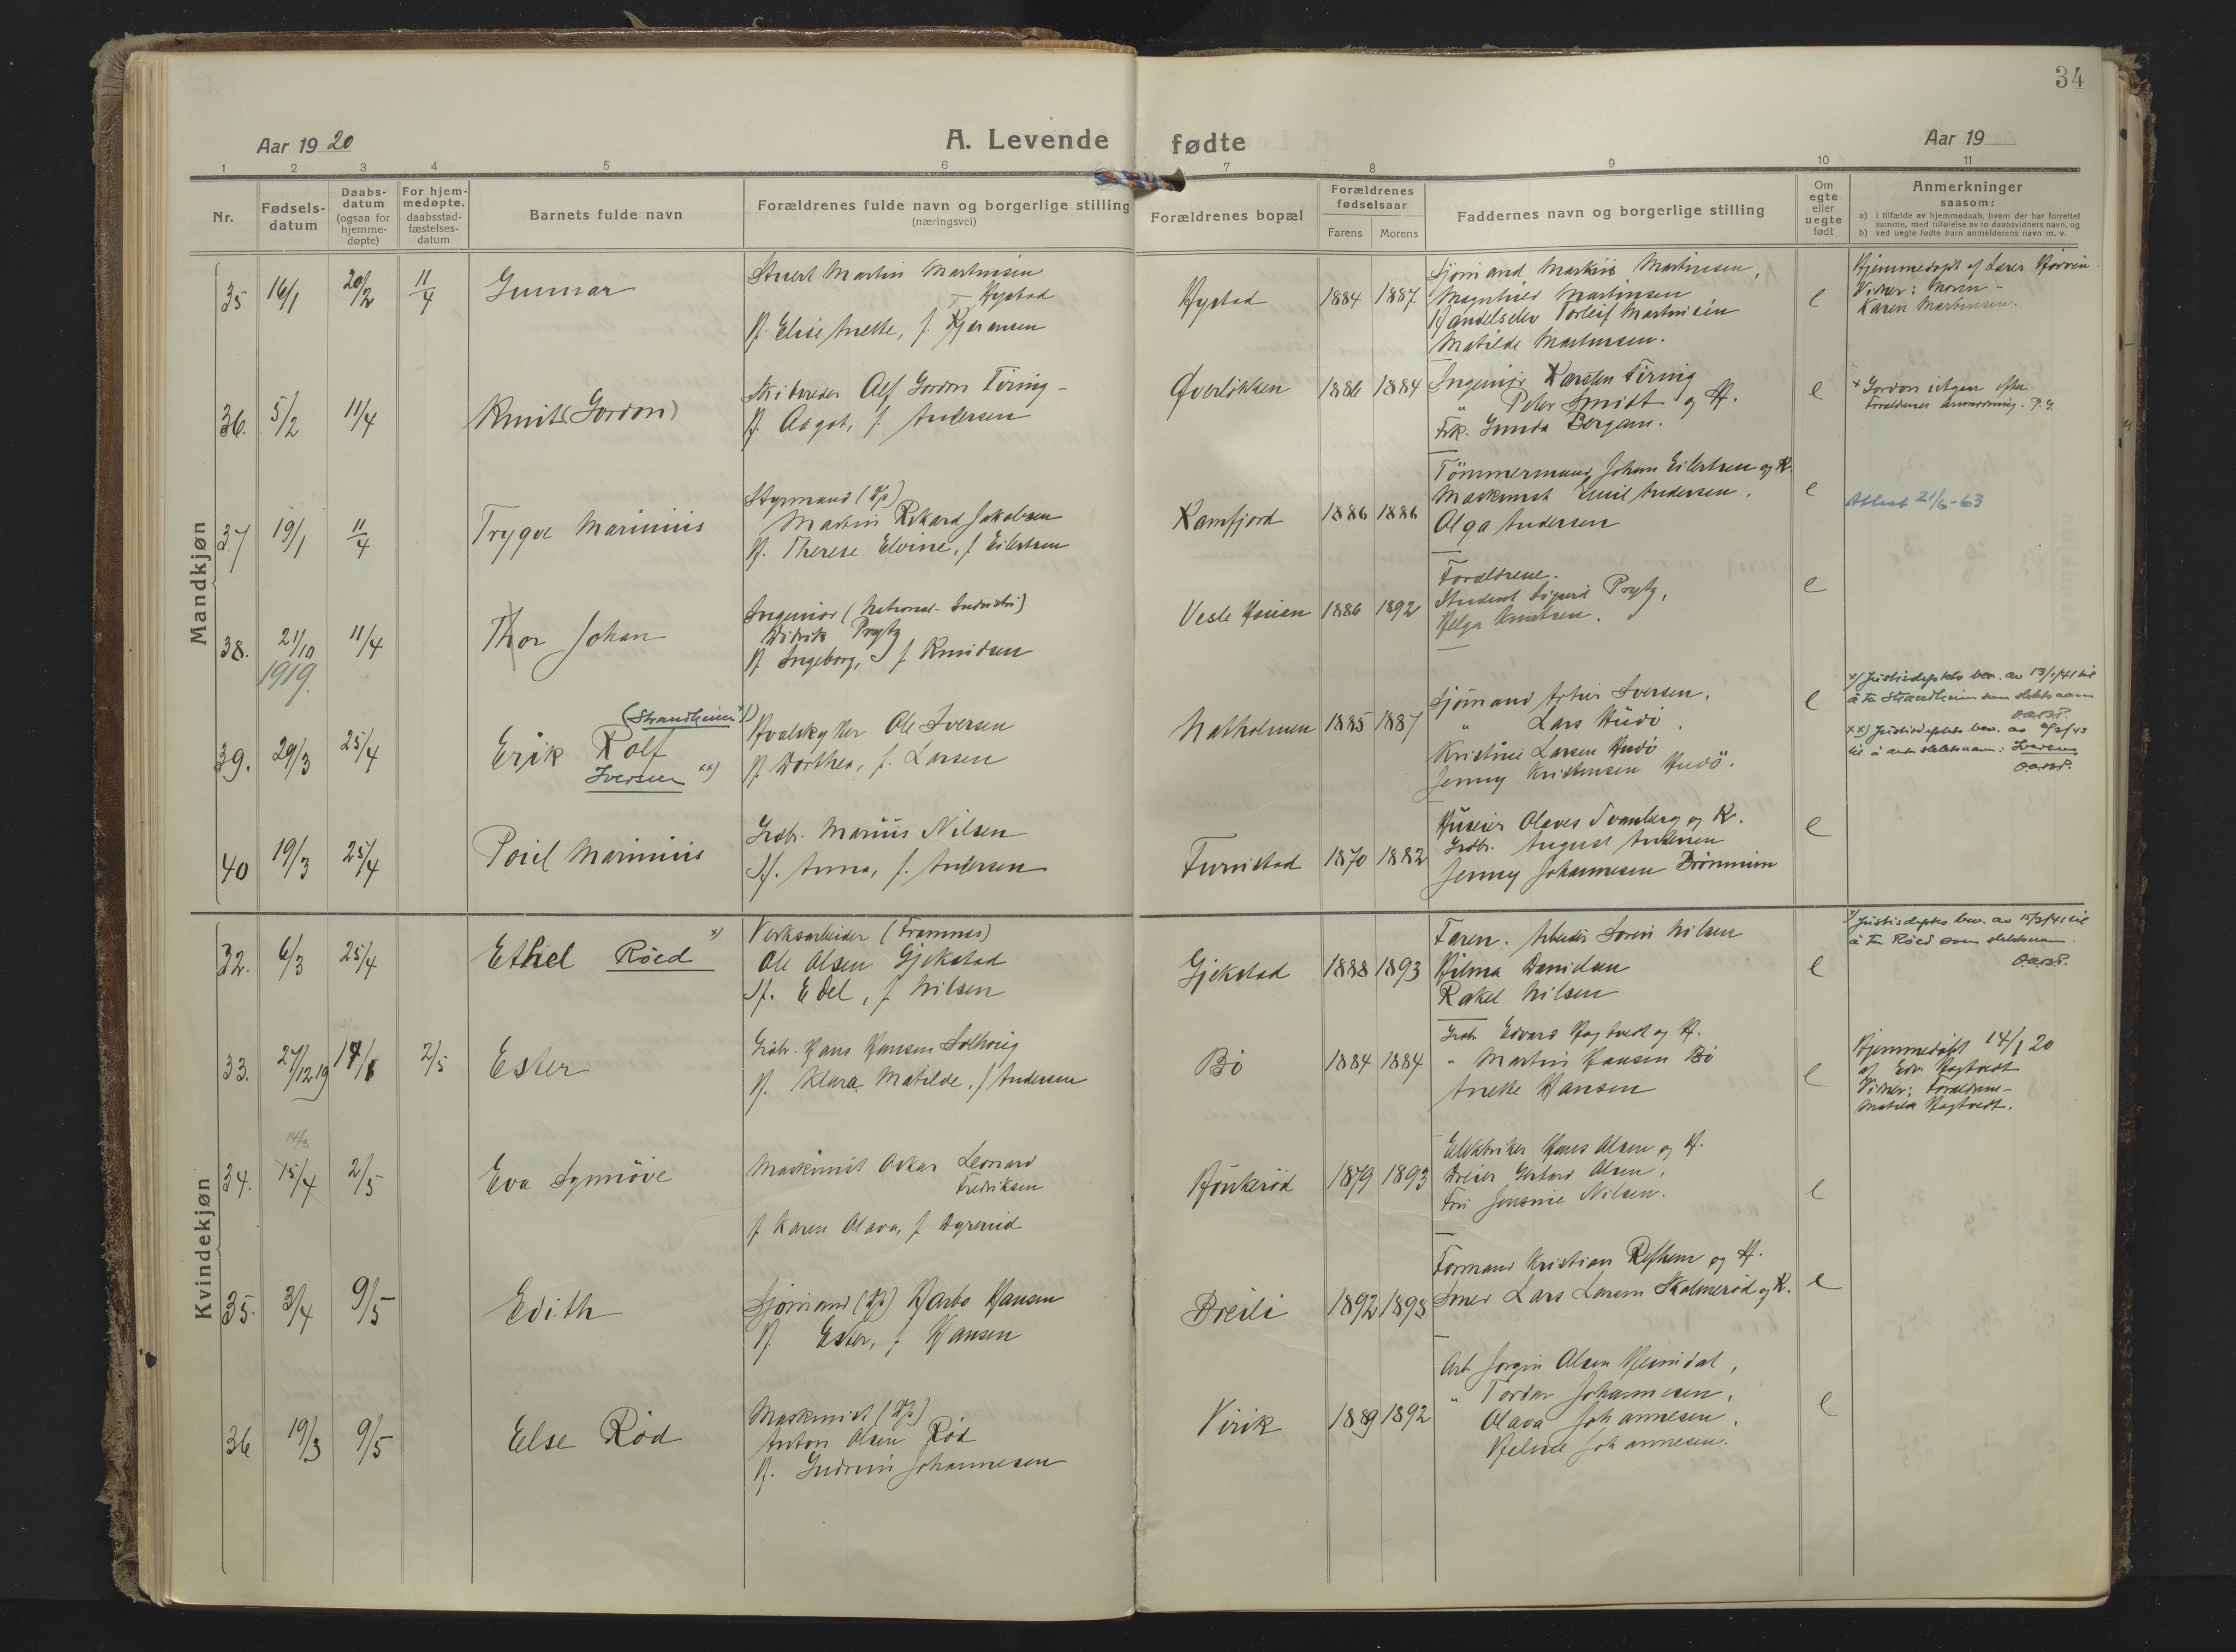 34
Aar 1920
A. Levende fødte
Aar 19
1 2 3 4 5 6 7 8 9 10 11
Nr.
Fødsels-
datum
Daabs-
datum
(ogsaa for
hjemme-
døpte)
For hjem-
medøpte,
daabsstad-
fæstelses-
datum
Barnets fulde navn
Forældrenes fulde navn og borgerlige stilling
(næringsvei)
Forældrenes bopæl
Forældrenes
fødselsaar
Farens Morens
Faddernes navn og borgerlige stilling
Om
egte
eller
uegte
født
Anmerkninger
saasom:
a) I tilfælde av hjemmedaab, hvem der har forrettet
samme, med tilføielse av to daabsvidners navn, og
b) ved uegte fødte barn anmelderens navn m. v.
Mandkjøn
35 16/1 20/2 11/4 Gunnar
Martin Martinsen
Hystad
H. Elise Anette, f.
Hystad 1884 1887
Sjømand Markus Martinsen,
Magnhild Martinsen
Handelselev Torleif Martinsen
Matilde Martinsen.
e
Hjemmedøpt af Lærer
Vidner: Moren -
Karen Martinsen.
36. 5/2 11/4 Knut (Gordon)
Skibsreder Alf Gordon Tiring -
H. Aagot, f. Andersen
Øverløkken 1886 1884
Ingeniør Karsten Tiring
" Peter Smidt og H.
Frk. Gunda Bergan.
e
x Gordon utgaar efter
Forældrenes anmodning. P. G.
37 19/1 11/4 Trygve Marinius
Styrmand (Hp)
Martin Rikard Jakobsen
H. Therese Elvine, f. Eilertsen
Kamfjord 1886 1886
Tømmermand Johan Eilertsen og K.
Maskinist Emil Andersen,
Olga Andersen
e
Attest 21/5-63
38. 21/10 1919. 11/4 Thor Johan
Ingeniør (National Industri)
Didrik Prytz
H. Ingeborg, f. Knudsen
Vesle Hauan 1886 1892
Forældrene.
Student Sigurd Prytz,
Helga Knutsen.
e
39. 29/3 25/4
(Strandheim x))
Erik Rolf
Iversen xx)
Hvalskytter Ole Iversen
H. Dorthea, f. Larsen
Natholmen 1885 1887
Sjømand Artur Iversen,
" Lars Hudø,
Kristine Larsen Hudø
Jenny Kristensen Hudø.
e
x) Justisdeptets bev. av 13/1/41 til
å ta Strandheim som slektsnavn
xx) Justisdeptets bev. av
til å anta slektsnavn: Iversen
40 19/3 25/4 Poul Marinius
Grdbr. Marius Nilsen
H. Anna, f. Andersen
Furustad 1870 1882
Huseier Olaves Svanberg og K.
Grdbr. August Andersen
Jenny Johannesen
e
Kvindekjøn
32. 6/3 25/4 Ethel Røed x)
Verksarbeider (Framnes)
Ole Olsen Gjekstad
H. Edel, f. Nilsen
Gjekstad 1888 1893
Faren. Arbeider Soren Nilsen
Hilma Danielsen
Rakel Nilsen
e
x) Justisdeptets bev. av 15/2/41 til
å ta Røed som slektsnavn.
33. 27/12 19 14/1 2/5 Ester
Grdbr. Hans Hansen
H. Klara Matilde, f. Andersen
Bø 1884 1884
Grdbr. Edvard Hagtvedt og H.
" Martin Hansen Bø
Anette Hansen
e
Hjemmedøbt 14/1 20
af Edv. Hagtvedt
Vidner: Forældrene -
Matilde Hagtvedt.
34. 14/3 15/4 2/5 Eva Synnøve
Maskinist Oskar Leonard
Fredriksen
f Karen Olava, f
1879 1893
Elektriker Hans Olsen og H.
Dreier Gerhard Olsen,
Fru Jensine Nilsen.
e
35. 3/4 9/5 Edith
Sjømand (Hp) Harbo Hansen
H. Ester, f. Hansen
Breili 1892 1898
Formand Kristian og H.
Smed Lars Larsen Skolmerød og K.
e
36 19/3 9/5 Else Rød
Maskinist (Hp)
Anton Olsen Rød
H. Gudrun Johannesen
Virik 1889 1892
Arb. Jørgen Olsen Heimdal,
" Tordar Johannesen,
Olava Johannesen,
Johannesen.
e